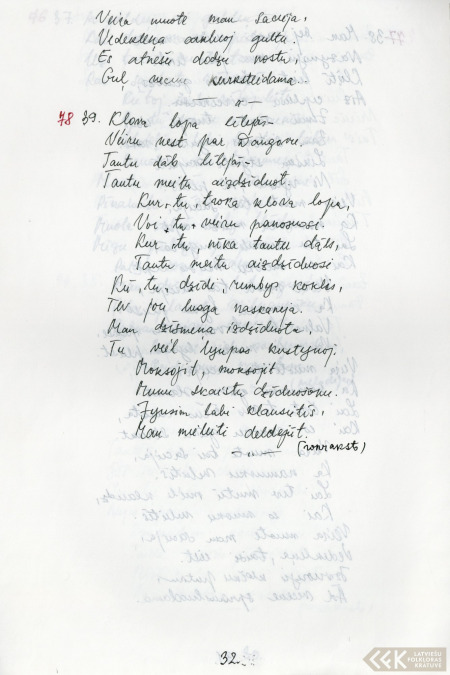 Veira muote man sacieja,
Vedekleņa
Es atnešu dodzu nostu,
Guļ kurksteidama.
— " —
78 39. Klova lopa lelejās-
Vēiru nest par Daugovu.
Tautu dāls lelejās-
Tautu meitu aizdzīduot.
Kur, tu, troka klova lopa,
Voi, tu, veiru panosuosi.
Kur, tu, nīka tautu dāls,
Tautu meitu aizdzīduosi
Kū, tu, dzīdi, rumbys koklis,
Tev pou luoga naskaneja.
Man dzīsmeņa izdzīduota,
Tu viēl lyupas kustynoj.
Moksojit, moksojit
Munu skaistu dzīduošonu.
Jyusim labi klauseitīs,
Man mēleiti deldējūt.
— " — (nonrakst)
32.
LATVIEŠU
FOLKLORAS
KRĀTUVE